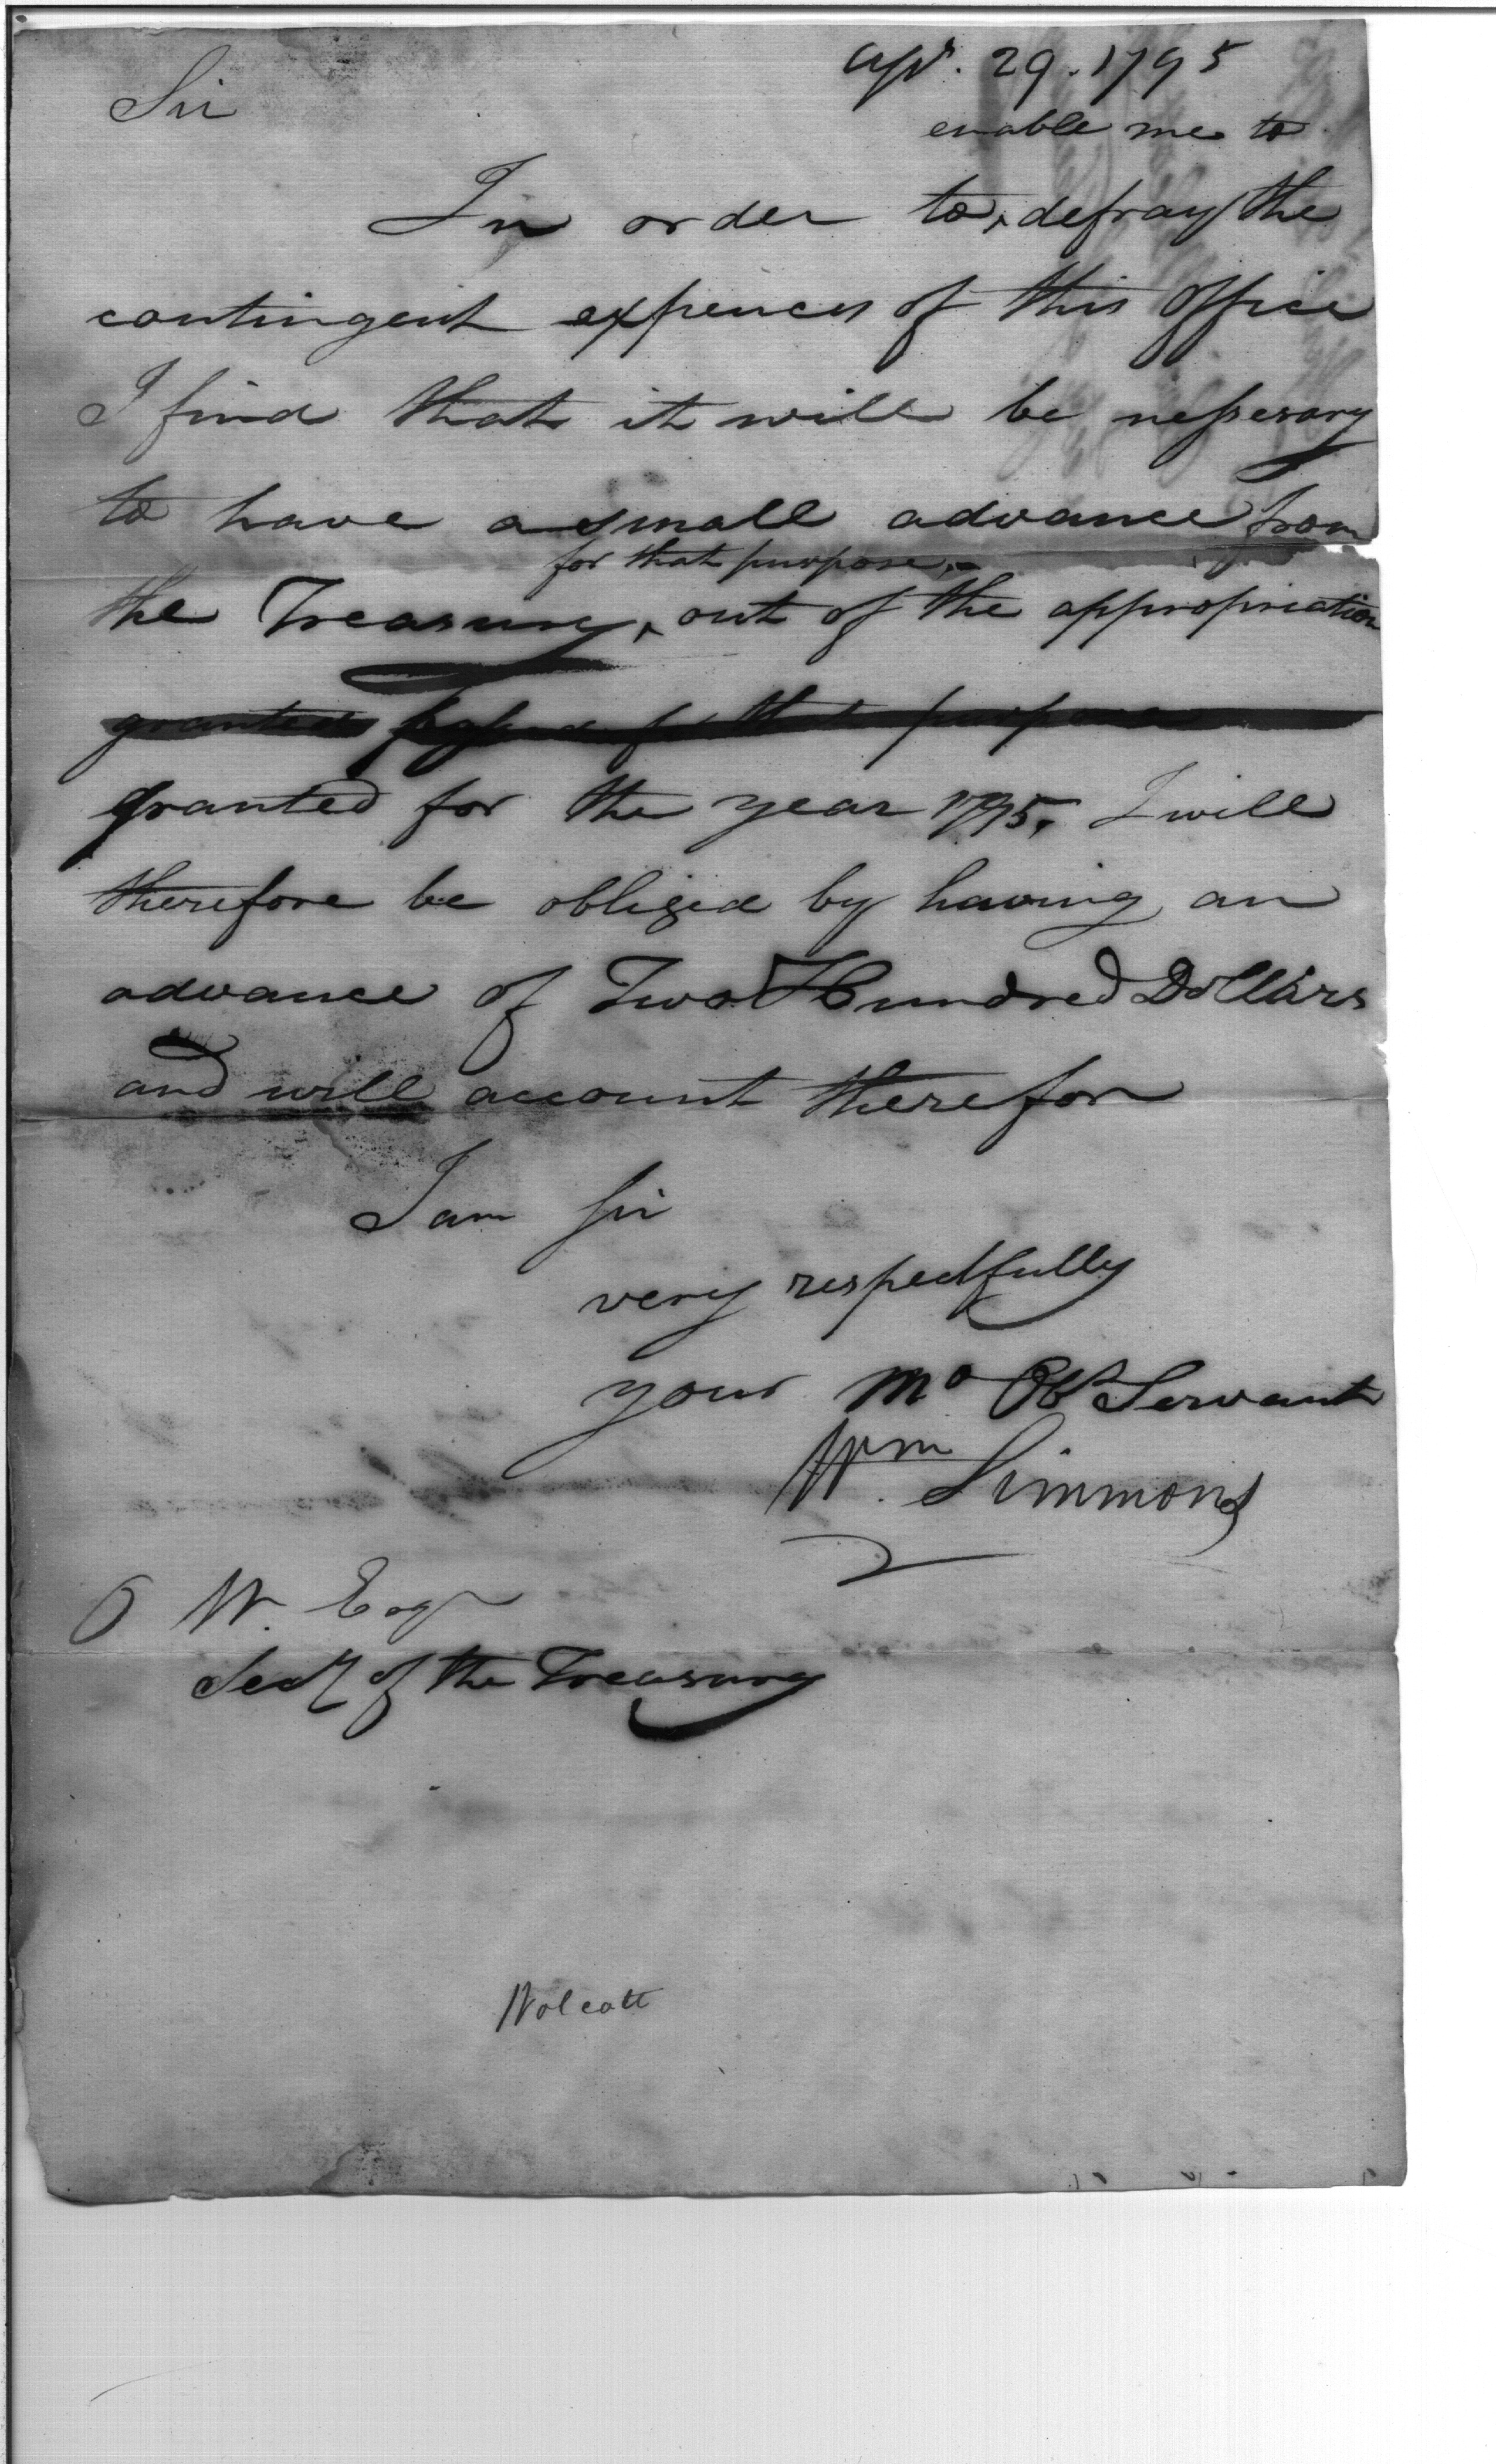 Apr. 29. 1795
Sir
enable me to
In order to ‸ defray the
contingent expences of this Office
I find that it will be nessesary
to have a small advance from
for that purpose
the Treasury ‸ out of the appropriation
granted for that purpose
granted for the year 1795, I will
therefore be obliged by having an
advance of Two Hundred Dollars
and will account therefor
I am Sir
very respectfully
your Mo Ob Servant
Wm Simmons
O W. Esqr
Secy of the Treasury
Wolcott